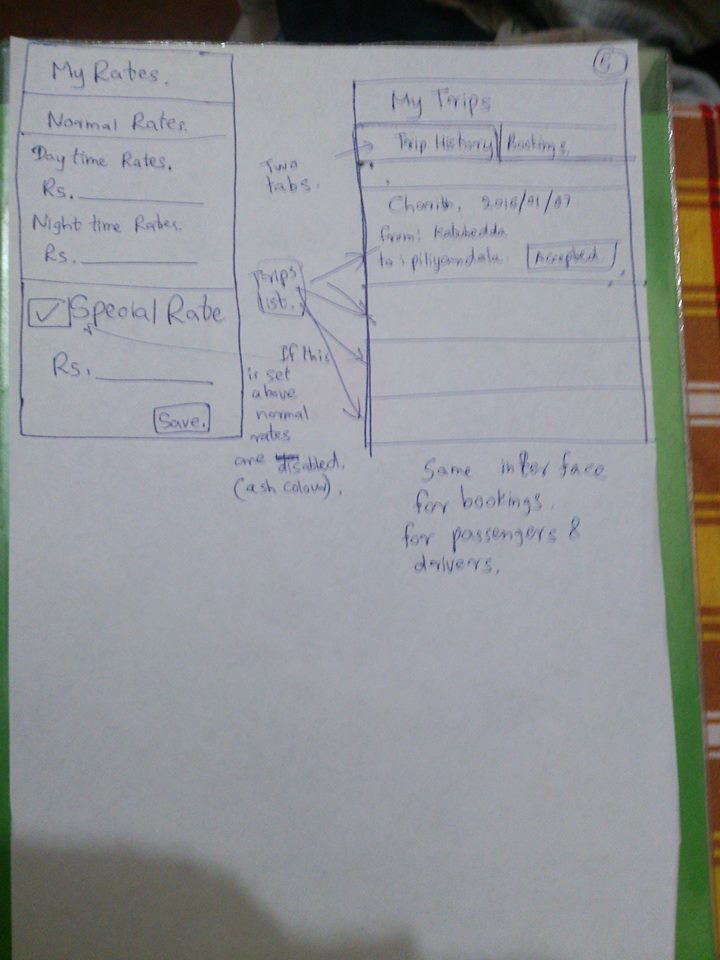 My Rates.
Normal Rates.
Day time Rates.
Rs.
Night time Rates.
Rs.
Special Rate
Rs.
Save.
If this
is set
above
normal
rates
are disabled.
(ash colour).
5
My Trips
Trip History Bookings
Two
tabs.
Charith, 2016/01/07
from: Katubedda
to: piliyandala. Accepted
Trips
list.
Same interface
for bookings.
for passengers &
drivers.